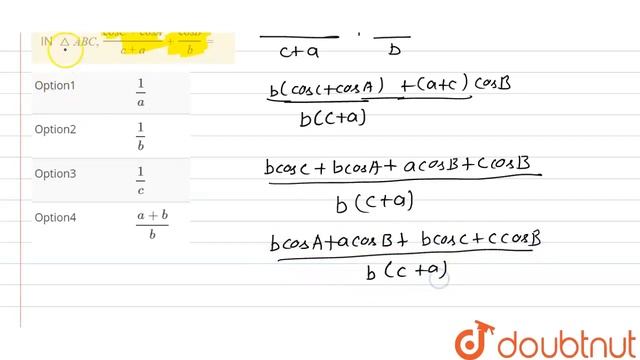 IN △ABC, (cosC + cosA)/(c + a) + cosB/b =
Option1 1/a
Option2 1/b
Option3 1/c
Option4 (a + b)/b
c+a b
b(cosC+cosA) +(a+c) cosB
b(c+a)
bcosC + bcosA + acosB + ccosB
b(c+a)
bcosA+acosB + bcosC+ccosB
b(c+a)
doubtnut